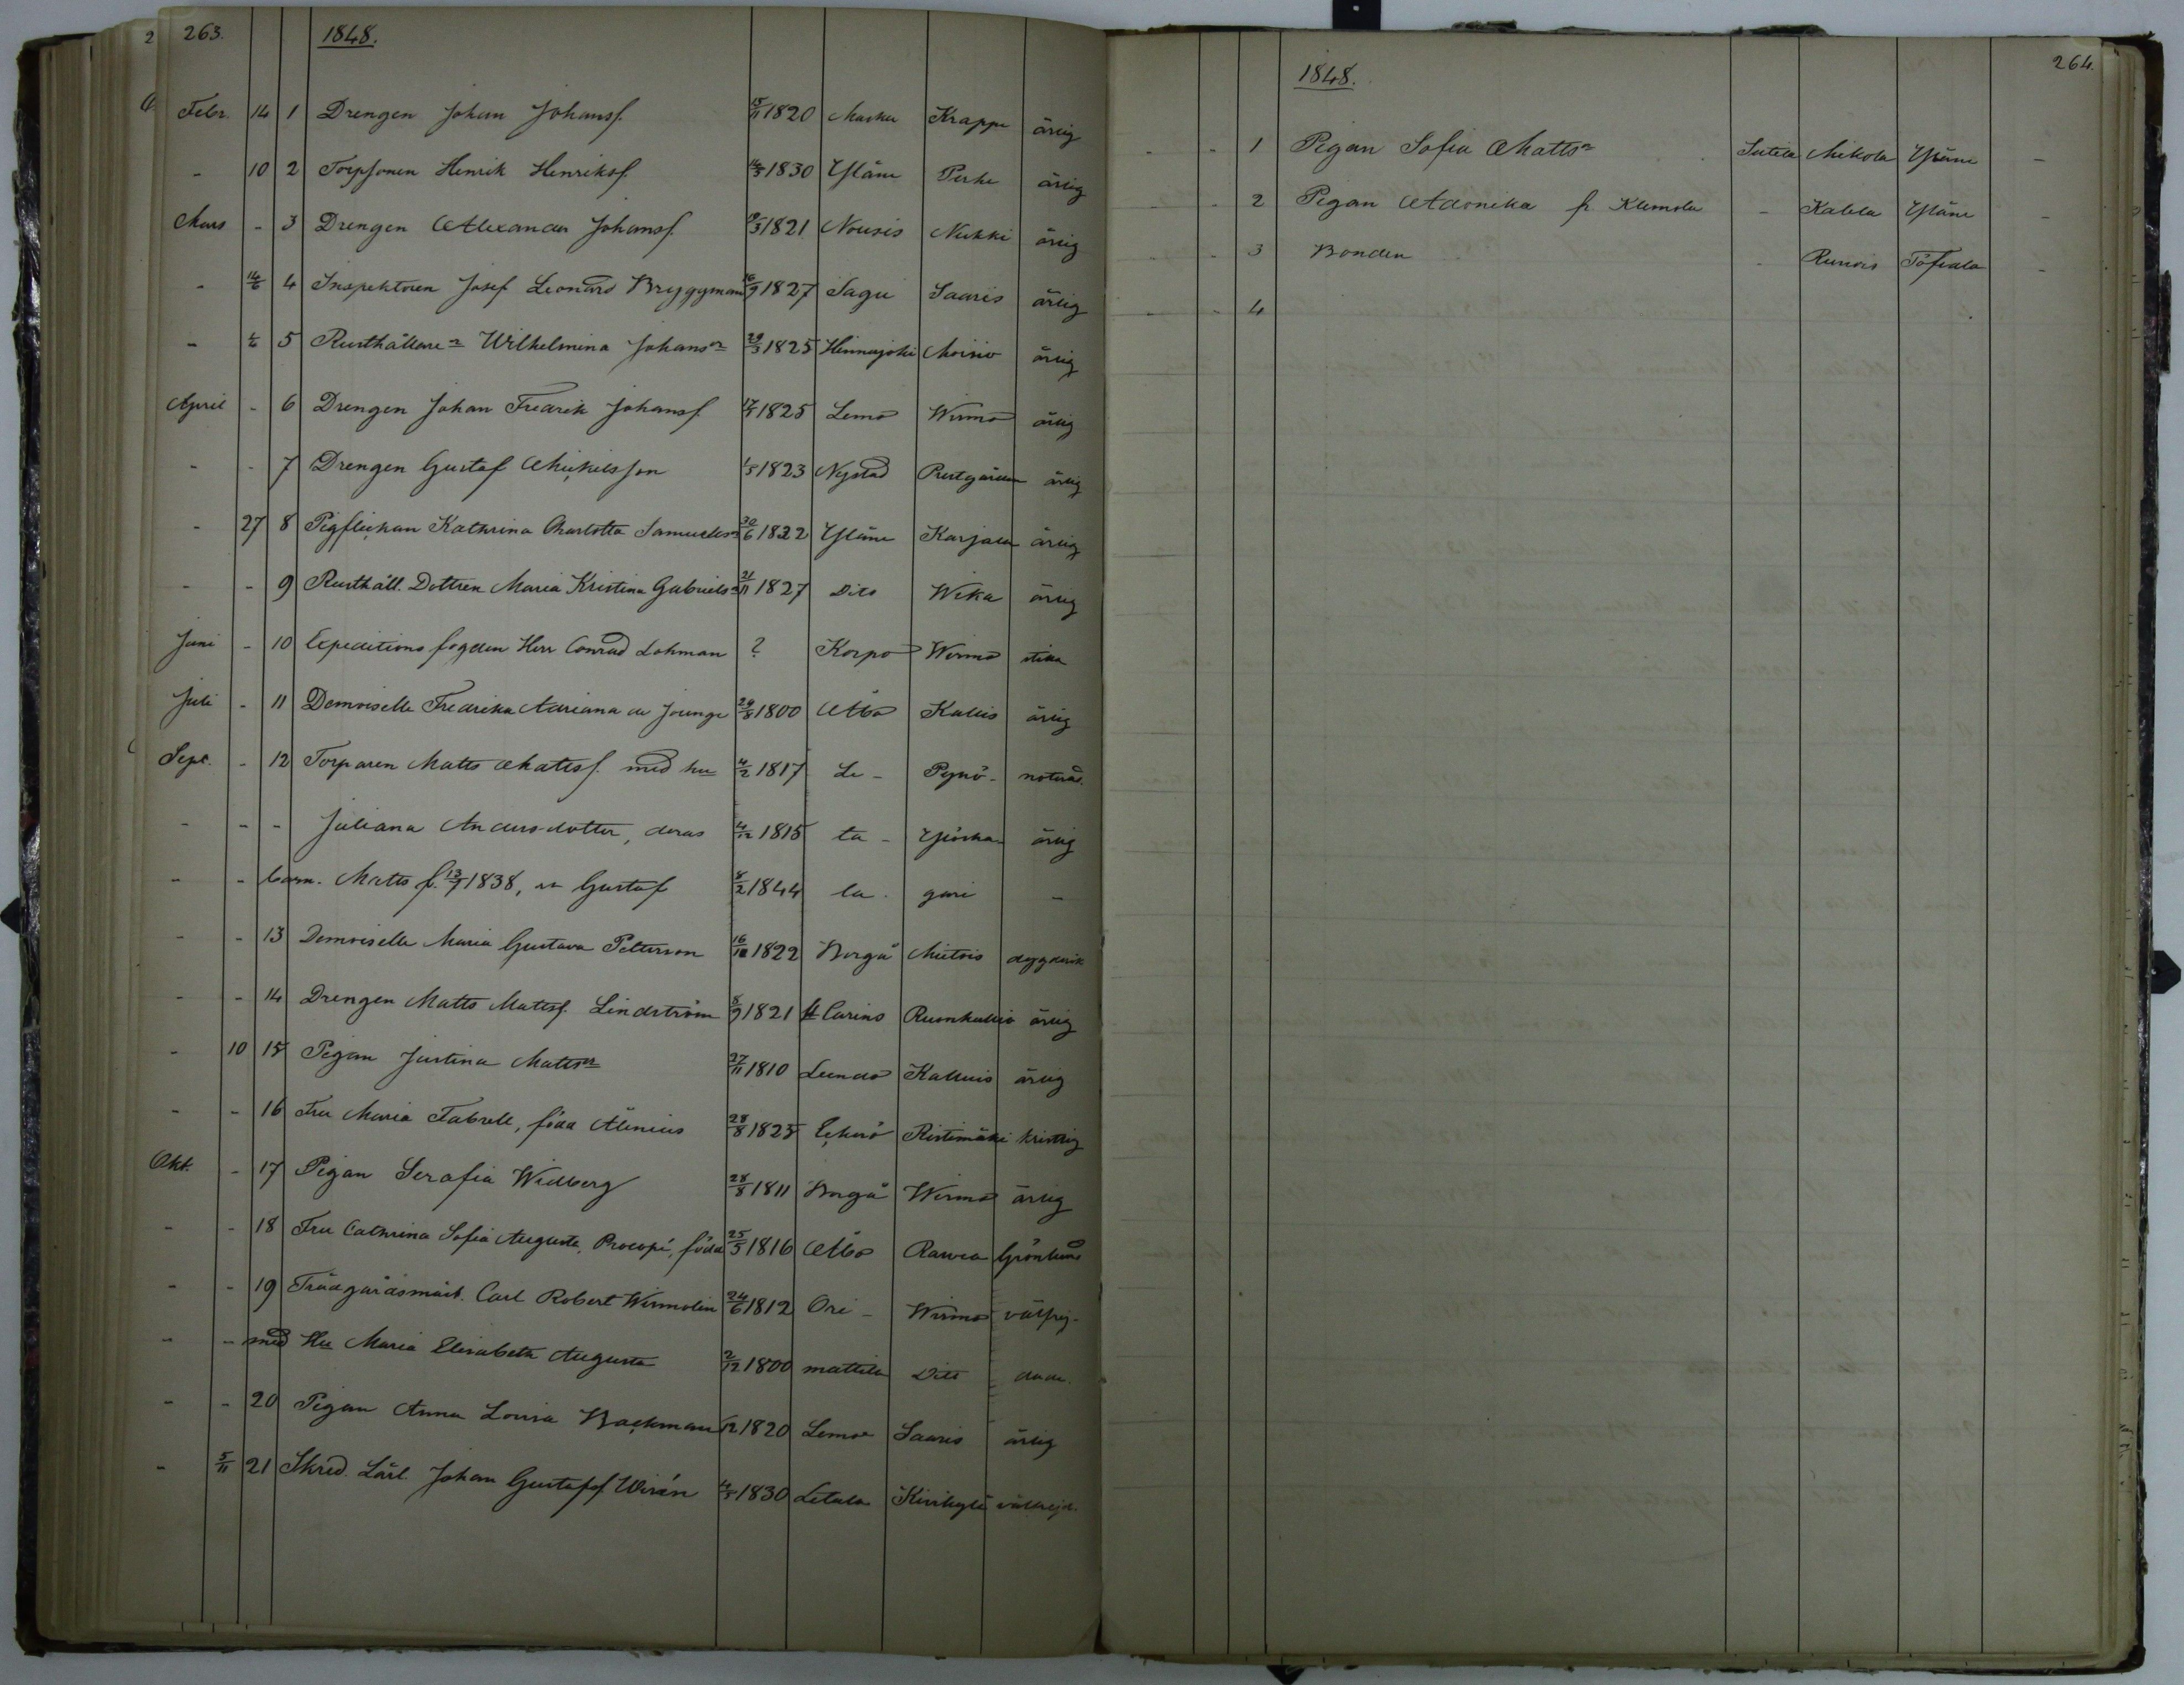 263.
1848.
Febr. 14 1 Drengen Johan Johansf. 15/11 1820 Masku Krappe ärlig
- 10 2 Torpsonen Henrik Henriksf. 14/5 1830 Yläne Perhe ärlig
Mars - 3 Drengen Alexander Johansf. 1821 Nousis Nukki ärlig
- 14/6 4 Inspektoren Josef Leonard Bryggman 16/9 1827 Sagu Saaris ärlig
- 5 Rusthållare Wilhelmina Johans 29/3 1825 Hinnerjoki Moisio ärlig
April - 6 Drengen Johan Fredrik Johansf 1825 Lemo Wirmo ärlig
- - 7 Drengen Gustaf Michelsson 1823 Nystad Prestgården ärlig
- 27 8 Pigflickan Kathrina Charlotta Samuels 30/6 1822 Yläne Karjala ärlig
- - 9 Rusthåll. Dottren Maria Kristina Gabriels 21/11 1827 Dito Wika ärlig
Juni - 10 Expeditions fogden Herr Conrad Lohman ? Korpo Wirmo
Juli - 11 Demoiselle Fredrika Adriana de Jounge 29/8 1800 Åbo Kallis ärlig
Sept. - 12 Torparen Matts Mattsf. med hu 4/2 1817 Le- Pynö- noterad.
- - - Juliana Andersdotter, deras 4/12 1815 ta- Yliska ärlig
- - barn. Matts f. 13/7 1838, Gustaf 8/2 1844 la. gari -
- - 13 Demoiselle Maria Gustava Petterson 1822 Borgå Mietois dygderik
- - 14 Drengen Matts Mattsf. Lindström 8/9 1821 St Carins Ruonkallio ärlig
- 10 15 Pigan Justina Matts 27/11 1810 Lundo Kalluis ärlig
- - 16 Fru Maria Fabrell, föda Alenius 28/8 1825 Eckerö Ristimäki kristlig
Okt. - 17 Pigan Serafia Widberg 28/8 1811 Borgå Wirmo ärlig
- - 18 Fru Cathrina Sofia Augusta, Procopé, föda 25/5 1816 Åbo Rawea Grönlund
- - 19 Trädgårdsmäst. Carl Robert Wirmolin 24/6 1812 Ori- Wirmo välfrej-
- - med Hu Maria Elisabeth Augusta 2/12 1800 mattila Dito dade.
- - 20 Pigan Anna Lovisa Backman 1820 Lemo Saaris ärlig
- 5/11 21 Skräd. Lärl. Johan Gustafsf Wirén 1830 Letala Kirikylä välfrejd.
264.
1848.
- - 1 Pigan Sofia Matts Sutela Mikola Yläne -
- - 2 Pigan Adonika fr. Klemola - Kalela Yläne -
- - 3 Bonden - Runois Töfsala -
- - 4